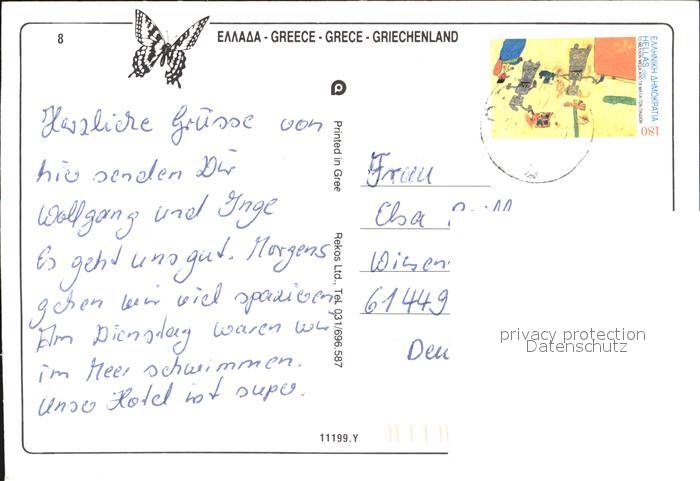 8
ΕΛΛΑΔΑ - GREECE - GRECE - GRIECHENLAND
Herzliche Grüsse von
hier senden Dir
Wolfgang und Inge
Es geht uns gut. Morgens
gehen wir viel spazieren
Am Dienstag waren wir
im Meer schwimmen.
Unser Hotel ist super.
Printed in Gree
Rekos Ltd., Tel. 031/696.587
ΕΛΛΗΝΙΚΗ ΔΗΜΟΚΡΑΤΙΑ
HELLAS
180
Frau
Elsa
Wiesen
61449
Deu
privacy protection
Datenschutz
11199.Y